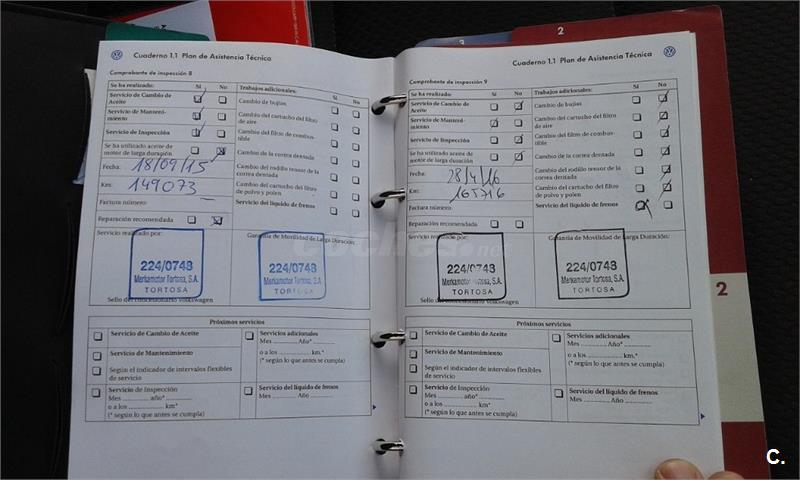 2
3
Cuaderno 1.1 Plan de Asistencia Técnica
Comprobante de inspección 8
Se ha realizado: Sí No
Servicio de Cambio de
Aceite
Servicio de Manteni-
miento
Servicio de Inspección
Se ha utilizado aceite de
motor de larga duración
Fecha: 18/09/15
Km: 149073
Factura número:
Reparación recomendada
Trabajos adicionales: Sí No
Cambio de bujías
Cambio del cartucho del filtro
de aire
Cambio del filtro de combus-
tible
Cambio de la correa dentada
Cambio del rodillo tensor de la
correa dentada
Cambio del cartucho del filtro
de polvo y polen
Servicio del líquido de frenos
Servicio realizado por:
Garantía de Movilidad de Larga Duración:
224/0743
Merkamotor Tortosa, S.A.
TORTOSA
224/0743
Merkamotor Tortosa, S.A.
TORTOSA
Sello del concesionario Volkswagen
Próximos servicios
Servicio de Cambio de Aceite
Servicio de Mantenimiento
Según el indicador de intervalos flexibles
de servicio
Servicio de Inspección
Mes ........... año ...........
o a los ........... km*
(* según lo que antes se cumpla)
Servicios adicionales
Mes ........... Año* ...........
o a los ........... km.*
(* según lo que antes se cumpla)
Servicio del líquido de frenos
Mes ........... Año ...........
Cuaderno 1.1 Plan de Asistencia Técnica
Comprobante de inspección 9
Se ha realizado: Sí No
Servicio de Cambio de
Aceite
Servicio de Manteni-
miento
Servicio de Inspección
Se ha utilizado aceite de
motor de larga duración
Fecha: 28/4/16
Km: 165716
Factura número:
Reparación recomendada
Trabajos adicionales: Sí No
Cambio de bujías
Cambio del cartucho del filtro
de aire
Cambio del filtro de combus-
tible
Cambio de la correa dentada
Cambio del rodillo tensor de la
correa dentada
Cambio del cartucho del filtro
de polvo y polen
Servicio del líquido de frenos
Servicio realizado por:
Garantía de Movilidad de Larga Duración:
224/0743
Merkamotor Tortosa, S.A.
TORTOSA
224/0743
Merkamotor Tortosa, S.A.
TORTOSA
Sello del concesionario Volkswagen
Próximos servicios
Servicio de Cambio de Aceite
Servicio de Mantenimiento
Según el indicador de intervalos flexibles
de servicio
Servicio de Inspección
Mes ........... año ...........
o a los ........... km*
(* según lo que antes se cumpla)
Servicios adicionales
Mes ........... Año* ...........
o a los ........... km.*
(* según lo que antes se cumpla)
Servicio del líquido de frenos
Mes ........... Año ...........
2
coches.net
C.